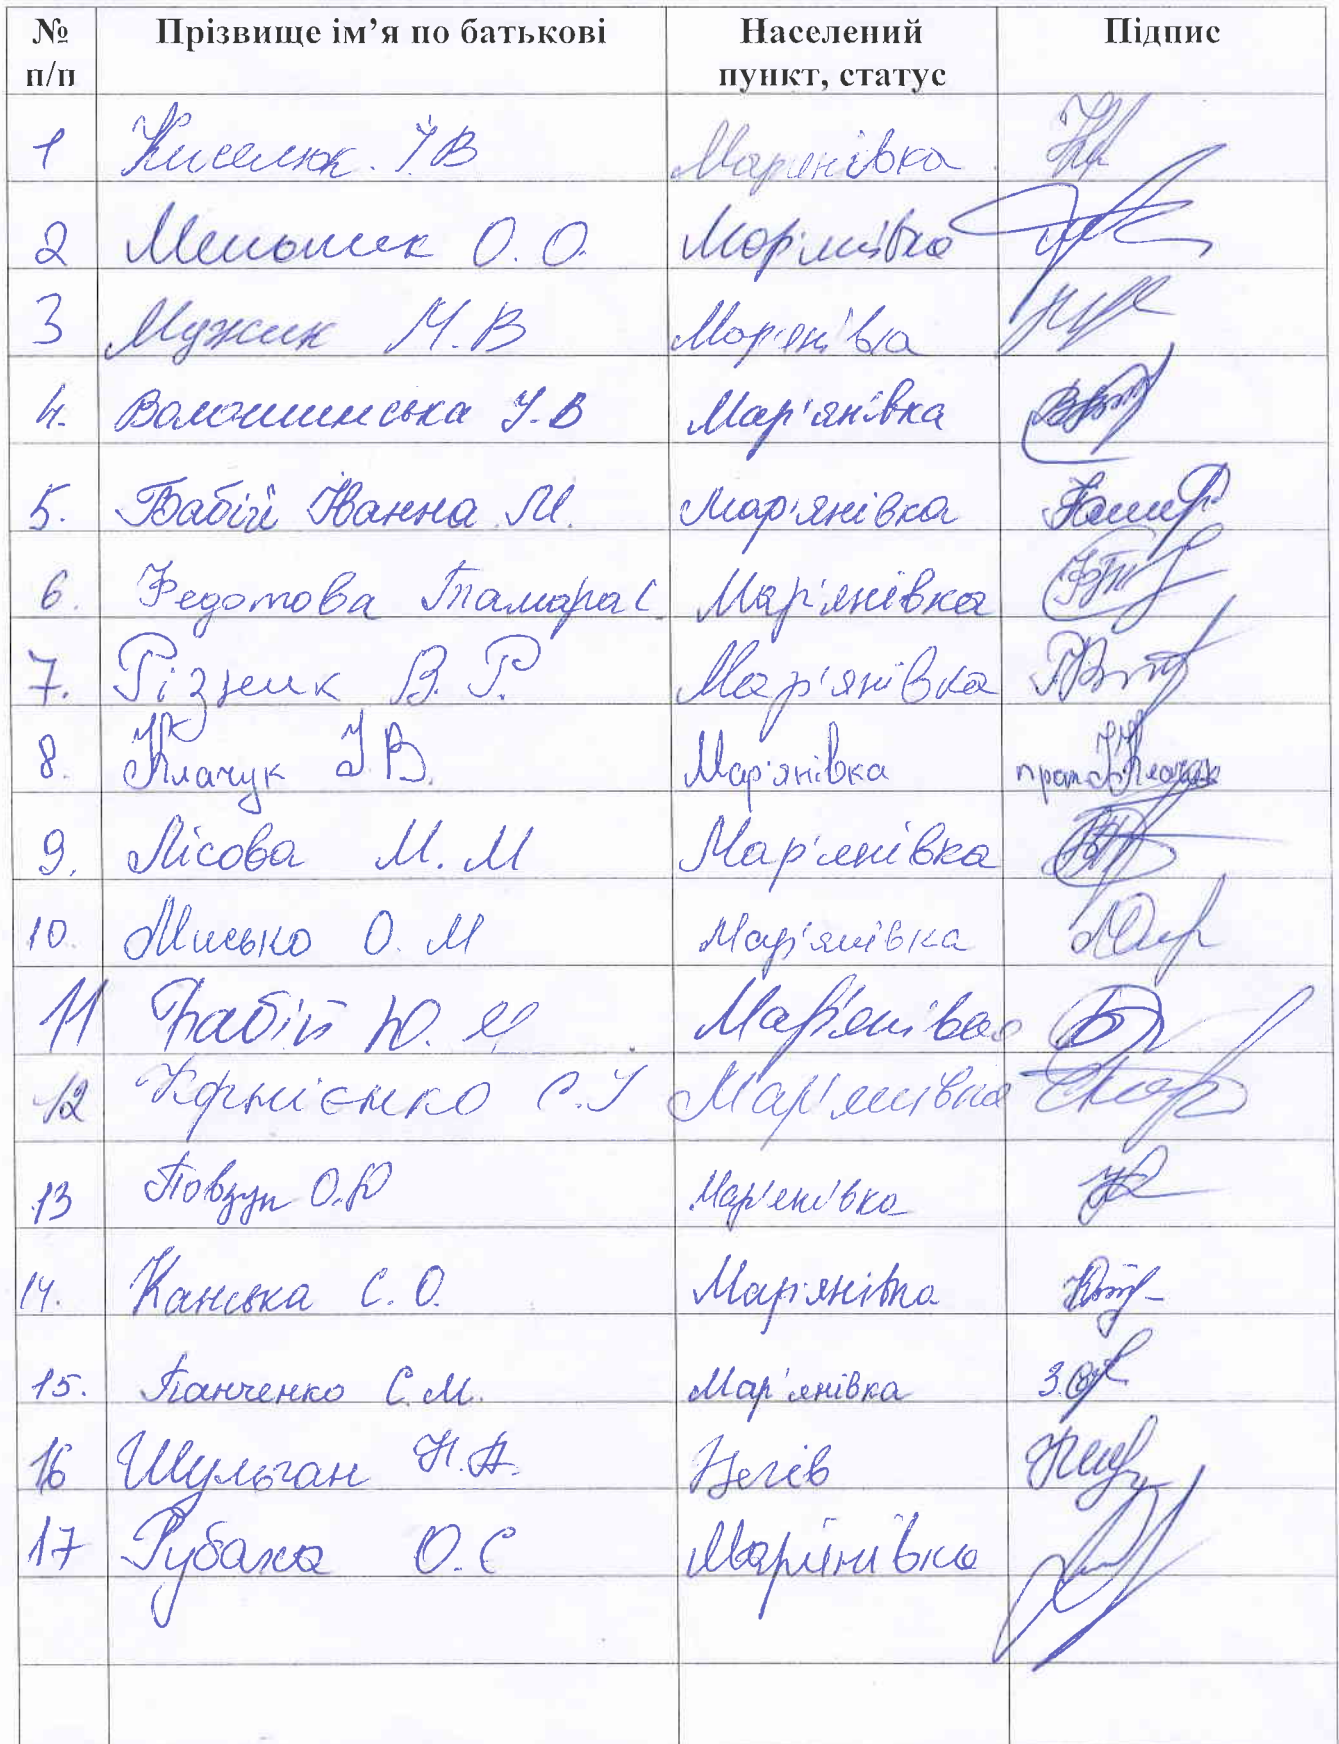 № п/п Прізвище ім’я по батькові Населений пункт, статус Підпис
1 Киселюк. І.В Мар'янівка
2 О. О. Мар'янівка
3 Мужик М.В Мар'янівка
4. Волошинська І.В Мар'янівка
5. Бабій Іванна М. Мар'янівка
6. Федотова Тамара С Мар'янівка
7. Різник В. Р. Мар'янівка
8. Клачук І.В. Мар'янівка
9. Лісова М. М Мар'янівка
10. Мисько О. М Мар'янівка
11 Бабій Ю. Мар'янівка
12 Корнієнко С.І Мар'янівка
13 Повзун О.Ю Мар'янівка
14. Канська С. О. Мар'янівка
15. Панченко С.М. Мар'янівка
16 Шульган Н.А.
17 Рубаха О.С Мар'янівка